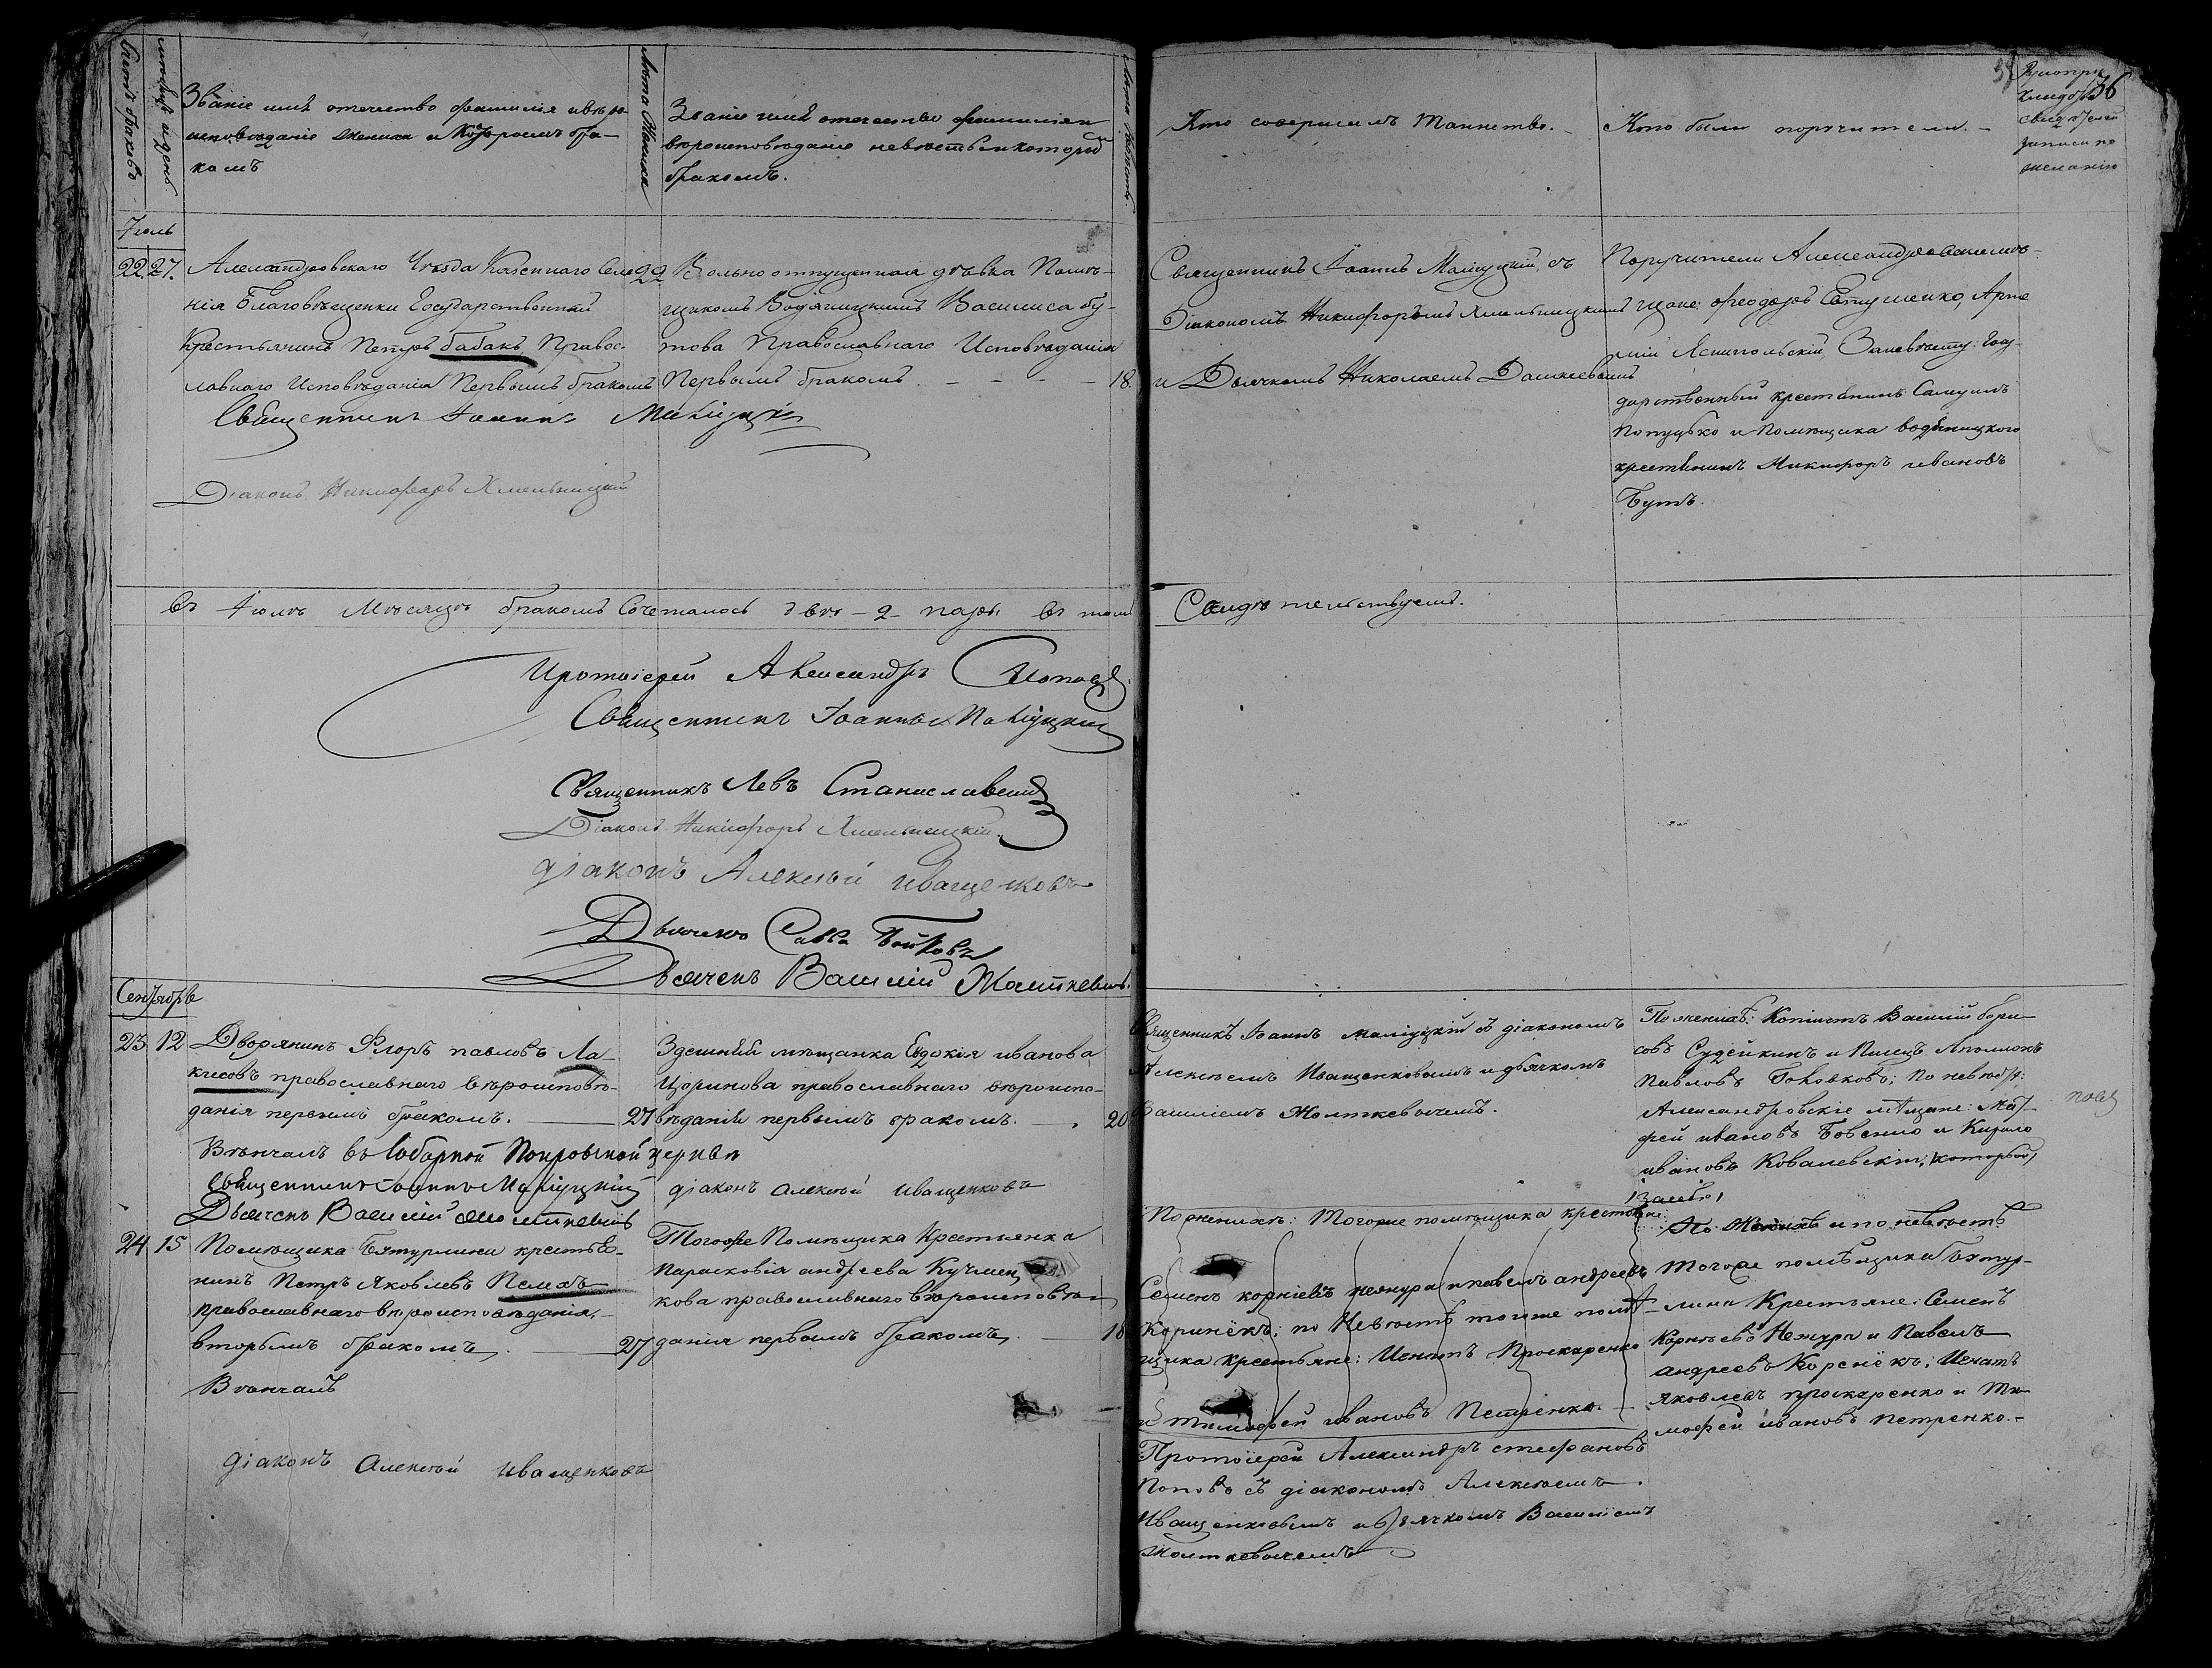 счетъ браковъ
мѣсяцъ и день
Званіе имя отечество фамилія и вѣро
исповѣданіе жениха и которымъ бра-
комъ
Лѣта жениха
Званіе имя отечество фамилія и
вѣроисповѣданіе невѣсты и которымъ
бракомъ.
Лѣта невѣсты.
Кто совершалъ Таинство. –
Кто были поручители. –
свидѣтелей
записи по
желанію
36
Іюль
22 27. Александровскаго Уѣзда Казеннаго Селе- 22
нія Благовѣщенки Государственный
Крестьянинъ Петръ Бабакъ Правос-
лавнаго Исповѣданія Первымъ бракомъ
Священникъ Іоаннъ Малѣуцкій
Діаконъ Никифоръ Хмельницкій
Вольноотпущенная дѣвка Помѣ-
щикомъ Водяницкимъ Василиса Бу-
това Православнаго Исповѣданія
Первымъ бракомъ. – – – – 18.
Священникъ Іоаннъ Маліуцкій, съ
Діакономъ Никифоромъ Хмельницкимъ
и Дьячкомъ Николаемъ
Поручители Александровскіе мѣ-
щане: Феодоръ Евтушенко, Арте
мій Яснопольскій, За невѣсту: Госу-
дарственный крестянинъ Самуилъ
и Помѣщика Водяницкого
крестянинъ Никифоръ Ивановъ
Бутъ.
Въ Іюлѣ Мѣсяцѣ бракомъ Сочеталось двѣ – 2 – пары въ томъ Свидѣтельствуемъ.
Протоіерей Александръ Поповъ
Священникъ Іоаннъ Маліуцкій
Священникъ Левъ Станиславскій
Діаконъ Никифоръ Хмельницкій.
Діаконъ Алексѣй Иващенковъ
Дьячекъ Савва
Дьячекъ Василій Жолткевичъ.
Сентябрь
23 12 Дворянинъ Флоръ Павловъ Ла-
кисовъ православнаго вѣроисповѣ-
данія первымъ бракомъ. — 27
Вѣнчалъ въ Соборной Покровской церкви
Священникъ Іоаннъ Маліуцкій
діаконъ Алексѣй Иващенковъ
Дьячекъ Василій Жолткевичъ
Здешняя мѣщанка Евдокія Иванова
Цоринова православнаго вѣроиспо-
вѣданія первымъ бракомъ. — 20
Священникъ Іоаннъ Маліуцкій съ діакономъ
Алексѣемъ Иващенковымъ и дьячкомъ
Василіемъ Жолткевичемъ.
По женихѣ: Копіистъ Василій Бори-
совъ Судейкинъ и Писецъ Аполлонъ
Павловъ по невѣстѣ:
Александровскіе мѣщане: Мат-
фей Ивановъ и Кирило
Ивановъ Ковалевскій;
24 15 Помѣщика Бутурлина крестья-
нинъ Петръ Яковлевъ Пелехъ
православнаго вѣроисповѣданія,
вторымъ бракомъ. — 27
Вѣнчалъ
діаконъ Алексѣй Иващенковъ
Тогоже Помѣщика Крестьянка
Парасковія Андреева
кова православнаго вѣроисповѣ-
данія первымъ бракомъ. — 18
По женихѣ: Тогоже помѣщика крестьяне:
Семенъ Корніевъ Нежура и Павелъ Андреевъ
Коринёкъ; по Невѣстѣ тогоже помѣ-
щика крестьяне: Игнатъ Проскаренко
и Тимофей Ивановъ Петренко. –
Протоіерей Александръ Стефановъ
Поповъ съ діакономъ Алексѣемъ
Иващенковымъ и дьячкомъ Василіемъ
Жолткевичемъ
По Женихѣ и по невѣстѣ
Тогоже помѣщика Бутур-
лина Крестьяне: Семенъ
Корнѣевъ Нежура и Павелъ
Андреевъ Коренёкъ; Игнатъ
Яковлевъ Проскаренко и Ти-
мофей Ивановъ Петренко. –